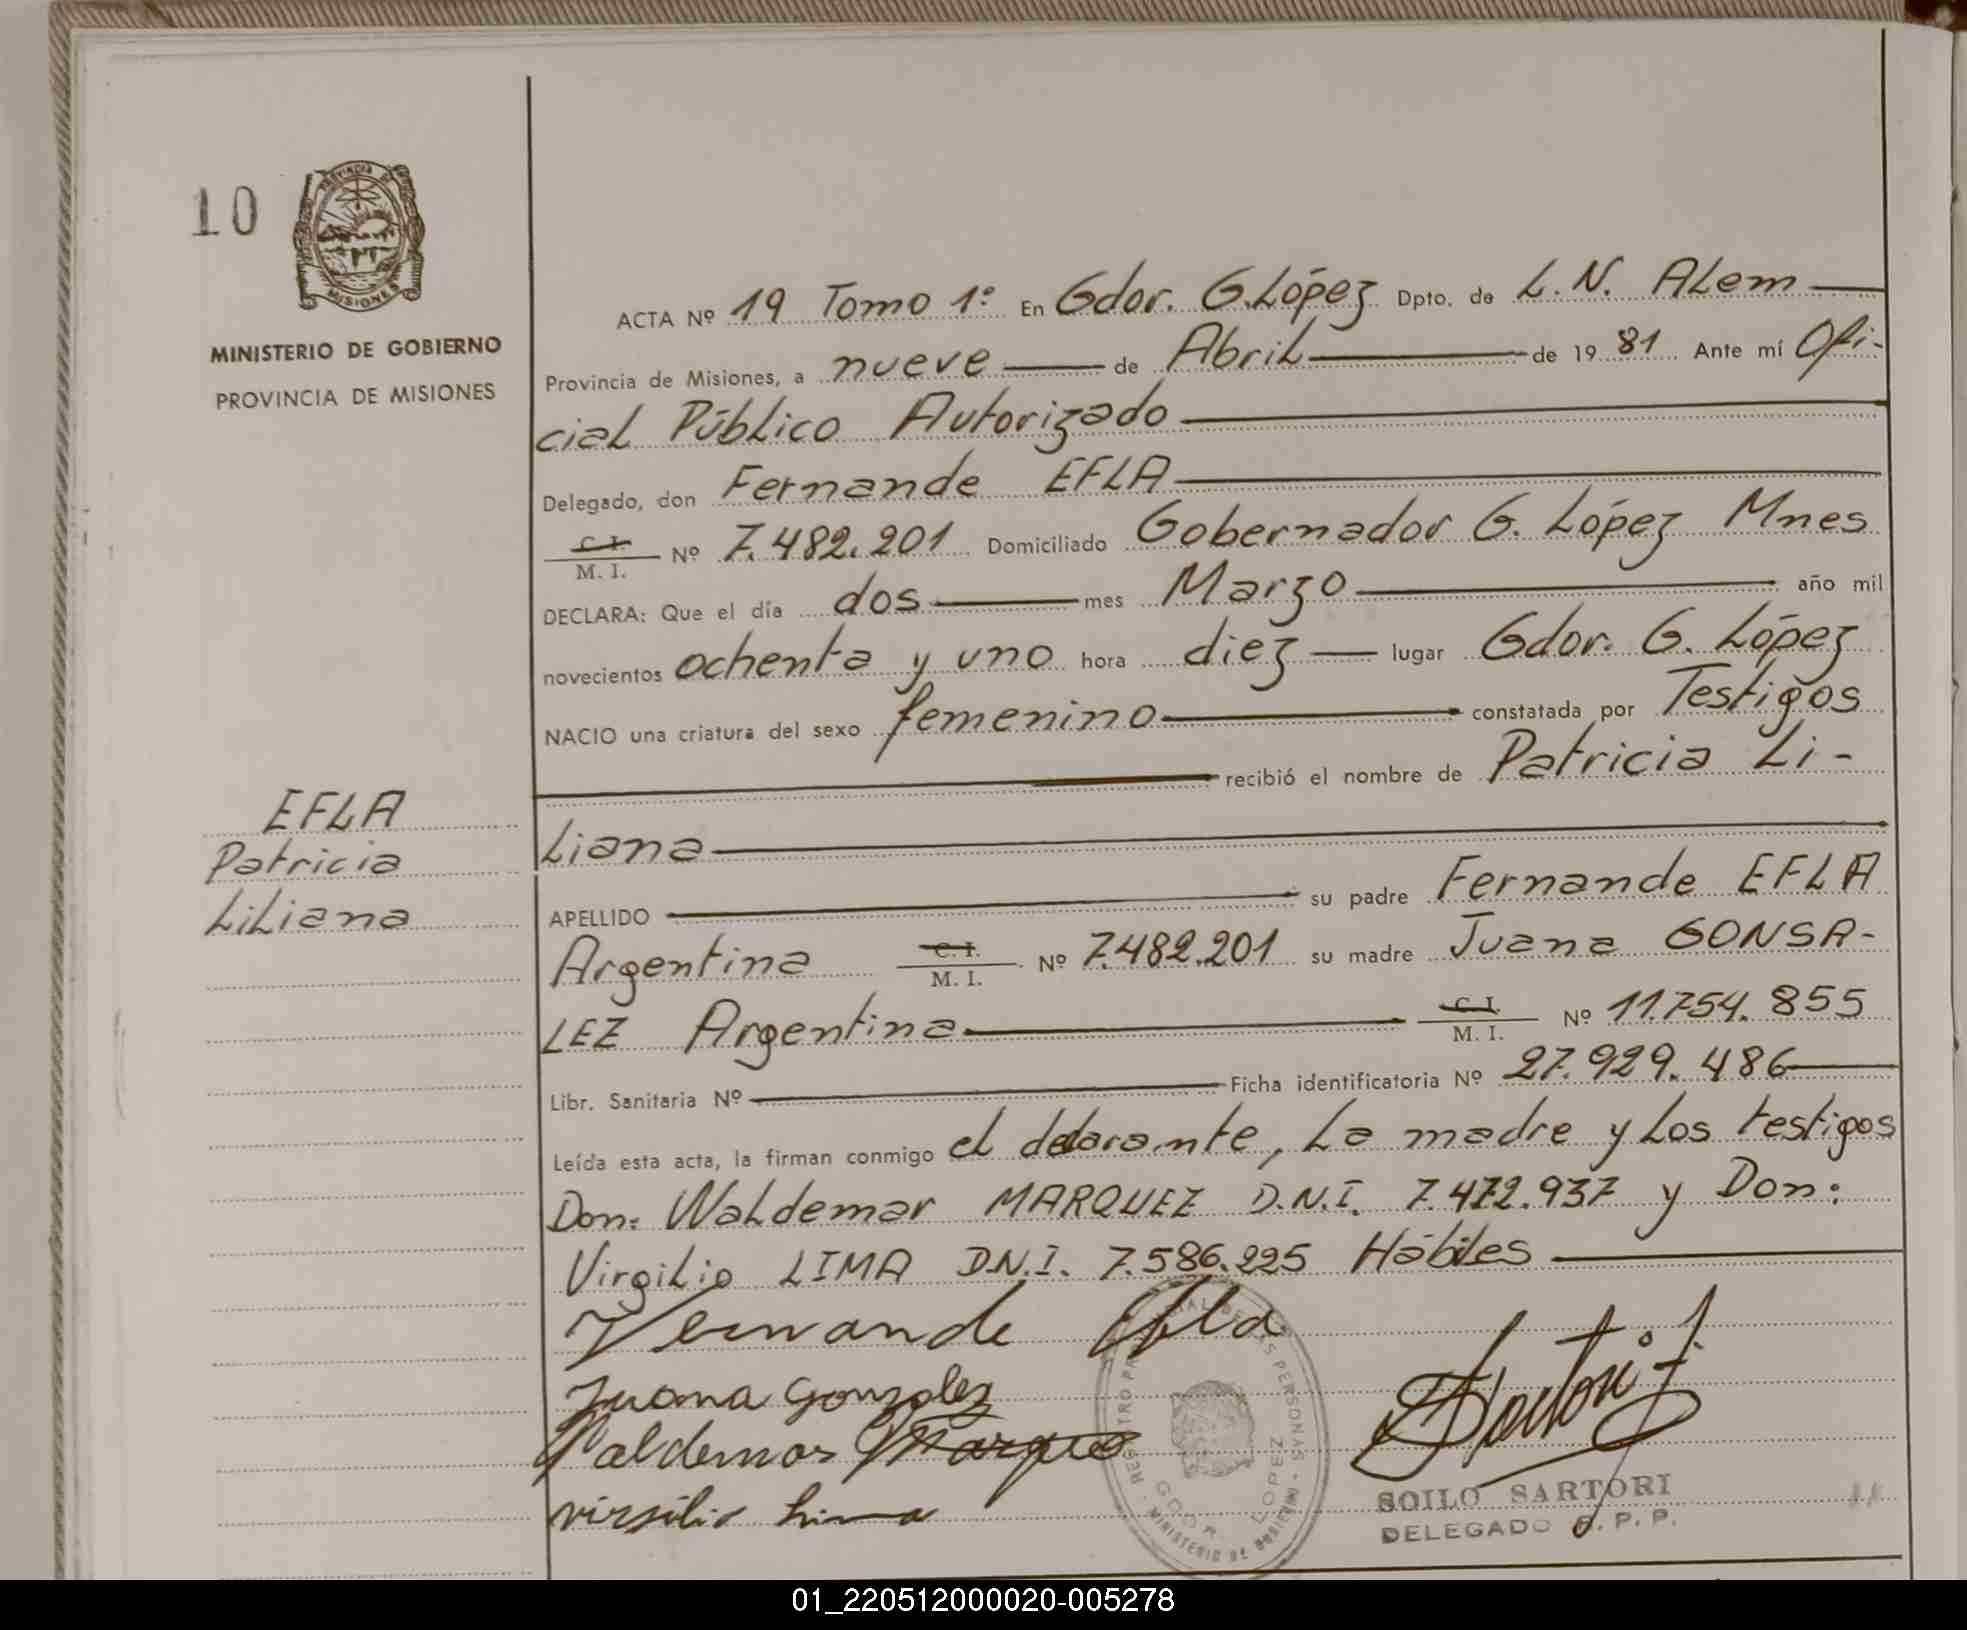 10
PROVINCIA DE
MISIONES
MINISTERIO DE GOBIERNO
PROVINCIA DE MISIONES
ACTA Nº 19 Tomo 1º En Gdor. G. López Dpto. de L. N. ALem
Provincia de Misiones, a nueve de Abril de 19 81 Ante mí Ofi-
cial Público Autorizado
Delegado, don Fernande EFLA
C. I.
M. I. Nº 7.482.201 Domiciliado Gobernador G. López Mnes
DECLARA: Que el día dos mes Marzo año mil
novecientos ochenta y uno hora diez lugar Gdor. G. López
NACIO una criatura del sexo femenino constatada por Testigos
recibió el nombre de Patricia Li-
Liana
EFLA
Patricia
Liliana
APELLIDO su padre Fernande EFLA
Argentina C. I. M. I. Nº 7.482.201 su madre Juana GONSA-
LEZ Argentina C. I. M. I. Nº 11.754.855
Libr. Sanitaria Nº Ficha identificatoria Nº 27.929.486
Leída esta acta, la firman conmigo el declarante, La madre y Los testigos
Don: Waldemar MARQUEZ D.N.I. 7.472.937 y Don:
Virgilio LIMA D.N.I. 7.586.225 Hábiles
Fernande Efla
Juana Gonzalez
Valdemar Marques
virgilio Lima
MINISTERIO DE GOBIERNO
GDOR. LOPEZ
SOILO SARTORI
DELEGADO R. P. P.
01_220512000020-005278